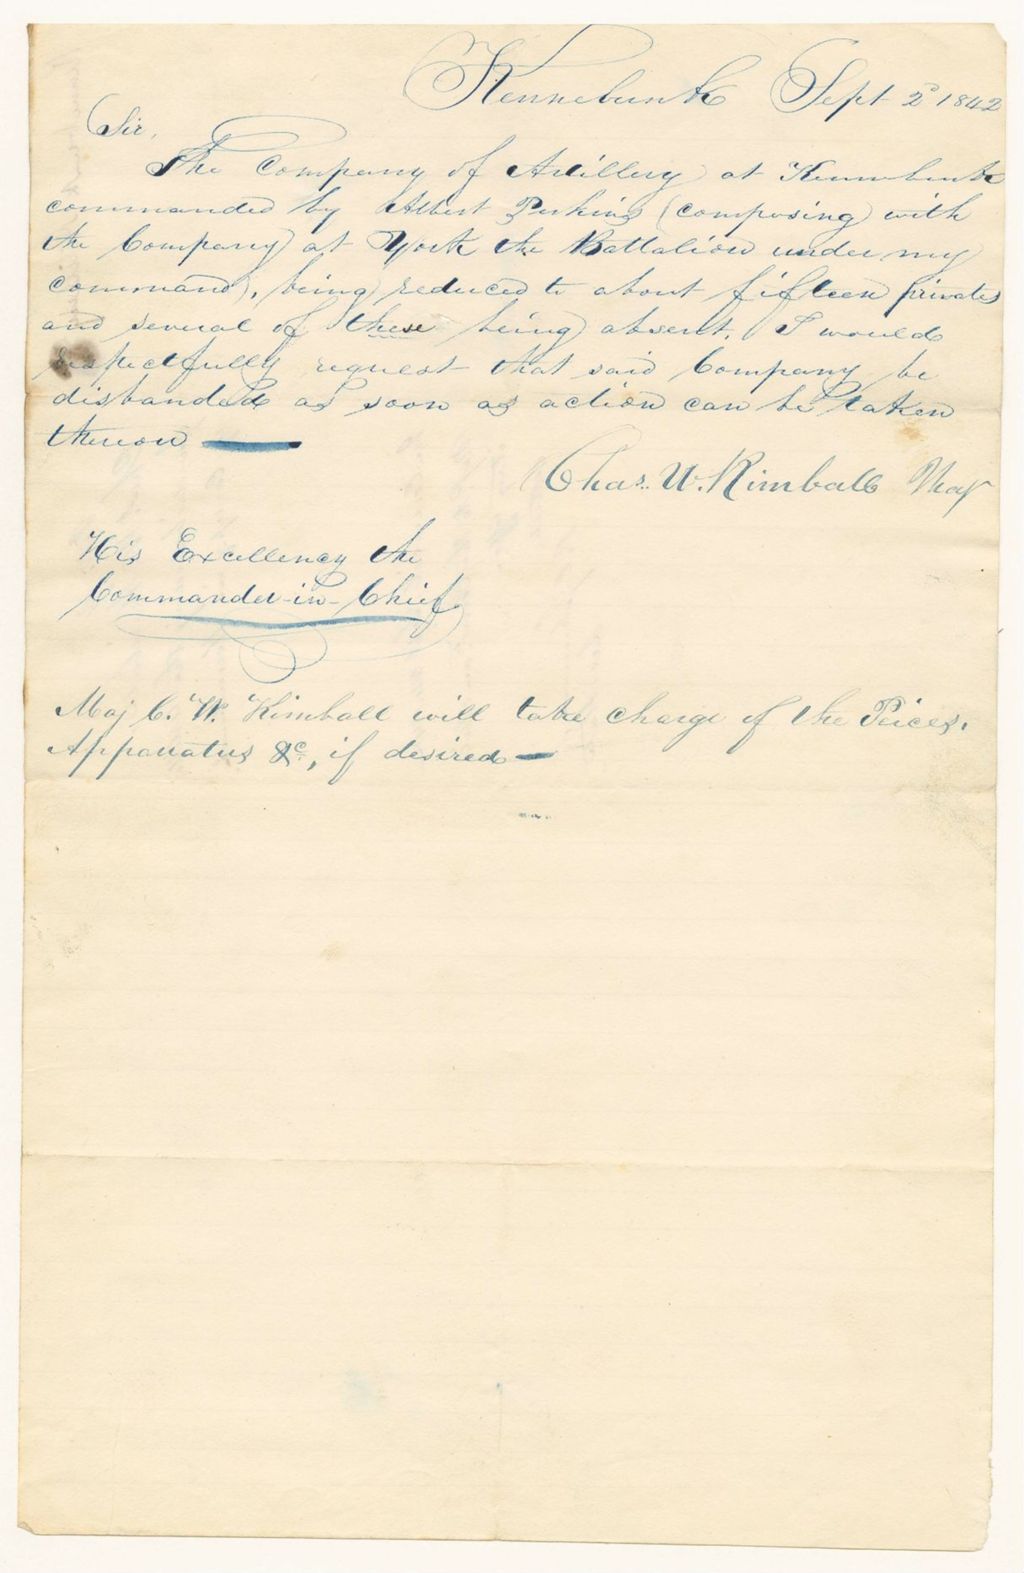 Kennebunk Sept 2d 1842
Sir,
The Company of Artillery at Kennebunk
commanded by Albert Perkins (composing with
the Company at York the Battalion under my
command), being reduced to about fifteen privates
and several of these being absent, I would
respectfully request that said Company be
disbanded as soon as action can be taken
thereon
Chas. W. Kimball Maj
His Excellency the
Commander-in-Chief
Maj C. W. Kimball will take charge of the Peices,
Apparatus &c., if desired